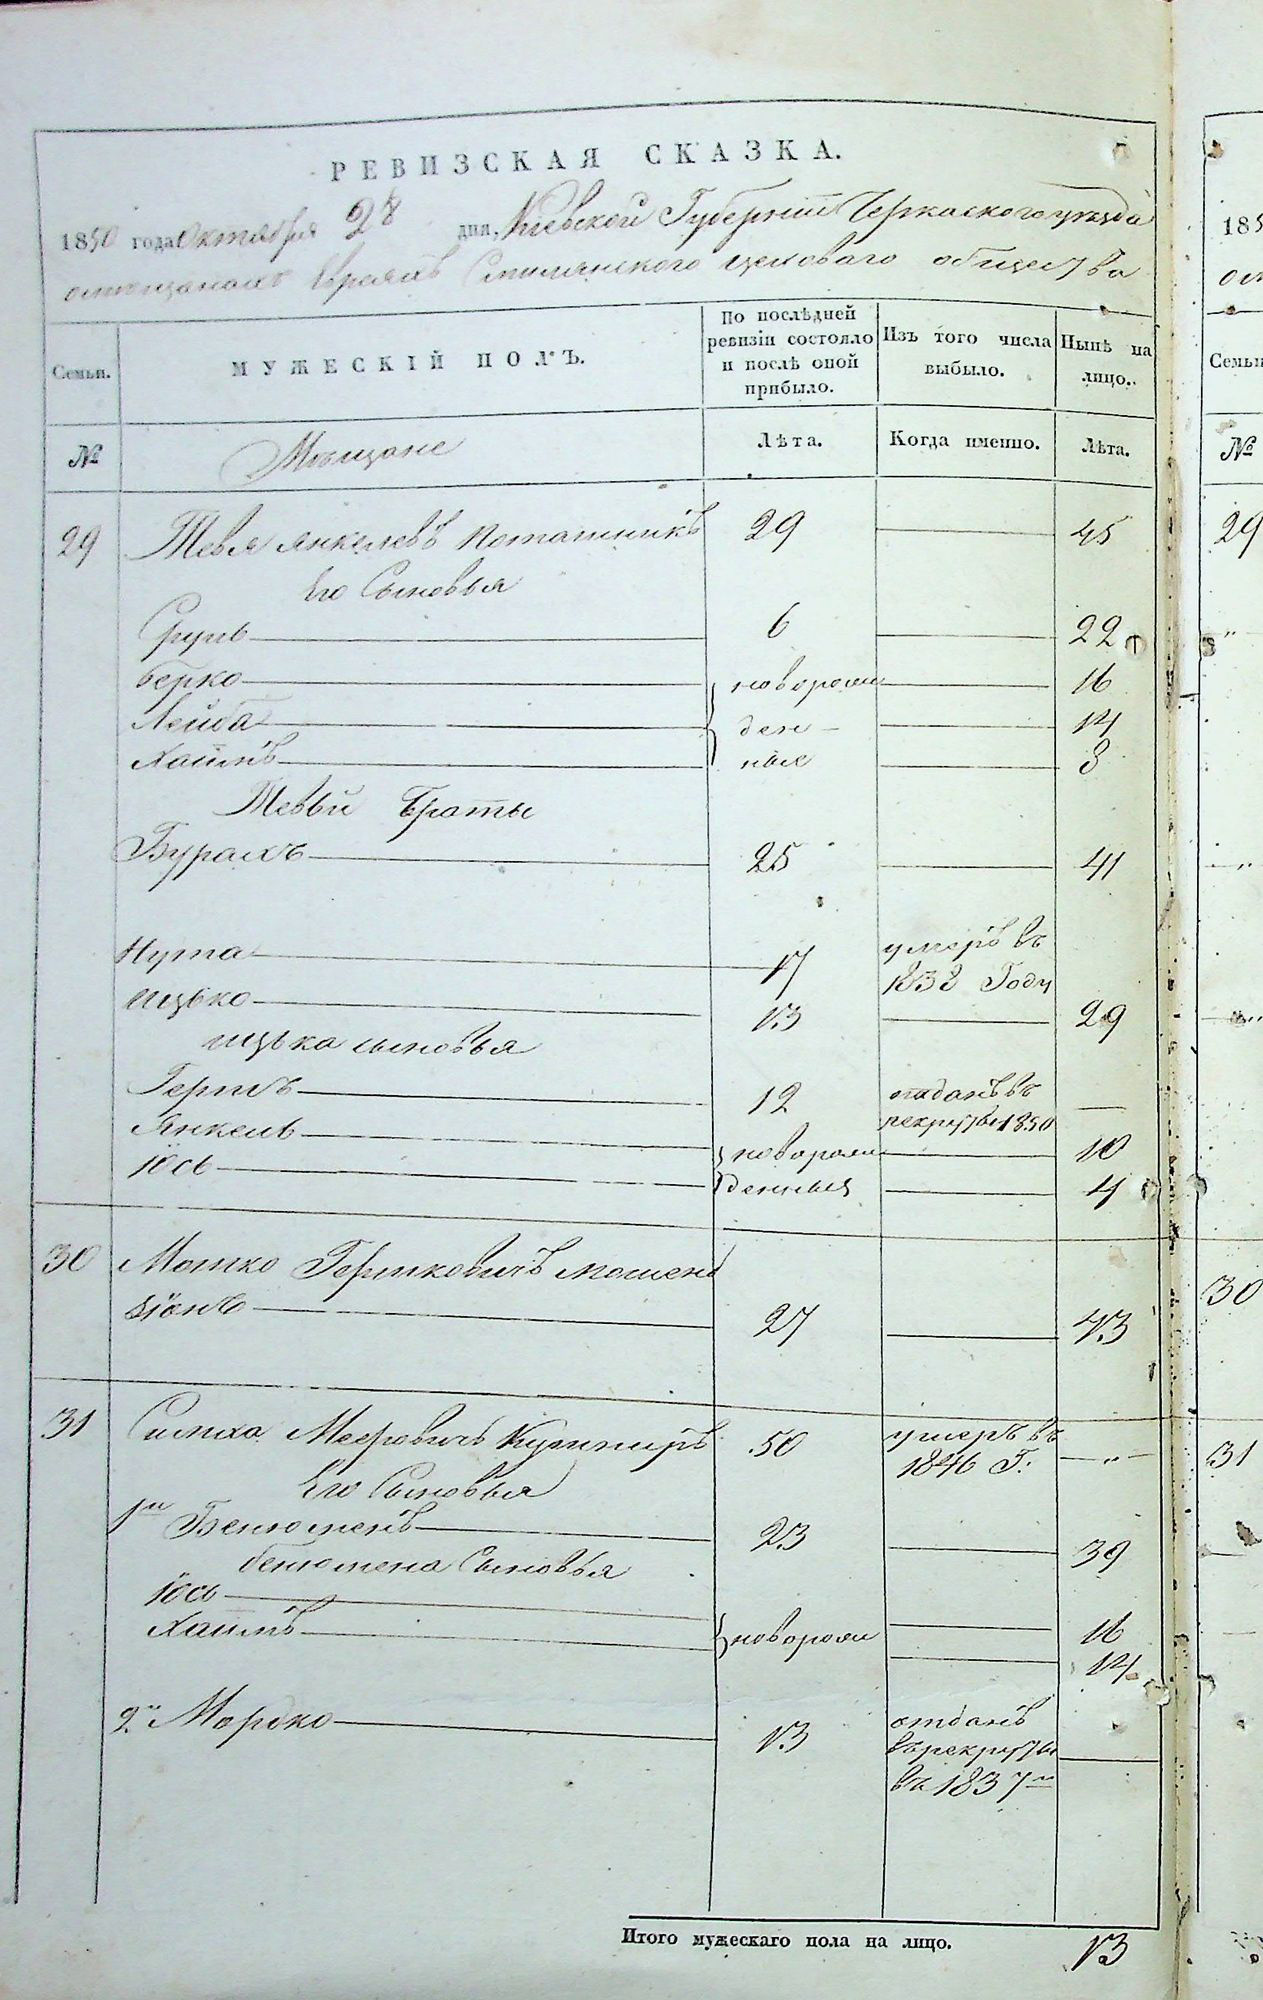 РЕВИЗСКАЯ СКАЗКА.
1850 года Октября 28 дня, Кіевской Губерніи Черкаскаго уѣзда
о мещанахъ Евреяхъ Смилянского цеховаго общества
Семьи.
МУЖЕСКІЙ ПОЛЪ.
По послѣдней ревизіи состояло и послѣ оной прибыло.
Изъ того числа выбыло.
Нынѣ на лицо.
№
Мѣщане
Лѣта.
Когда именно.
Лѣта.
29 Тевя Янкелевъ Поташникъ 29 45
Его Сыновья
Сруль 6 22
Берко новорож 16
Лейба ден 14
Хаимъ ные 8
Тевьи Браты
Бурахъ 25 41
Нута 17 умеръ въ 1838 Году
Ицько 13 29
Ицька сыновья
Гершъ 12 отданъ въ рекруты 1850
Янкель новорож 10
Іось денныя 4
30 Мошко Гершковичъ
зіонъ 27 43
31 Симха Мееровичъ Кушниръ 50 умеръ въ 1846 Г. — „ —
Его Сыновья
1й Бенюменъ 23 39
Бенюмена Сыновья
Іось 16
Хаимъ новорож 14
2й Мордко 13 отданъ
въ рекруты
въ 1837м
Итого мужескаго пола на лицо. 13
185
Семьи
№
29
„
„
„
30
31